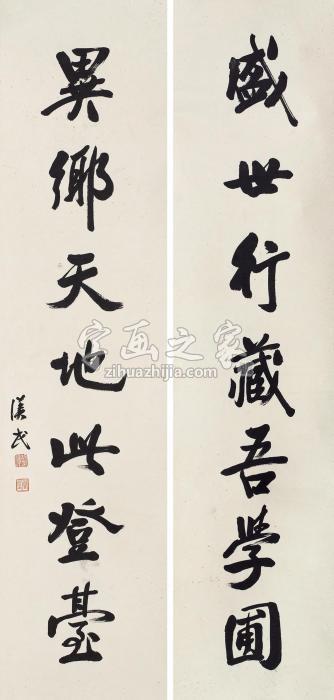 盛世行藏吾學圃
異鄉天地此登臺
漢民
字画之家
zihuazhijia.com